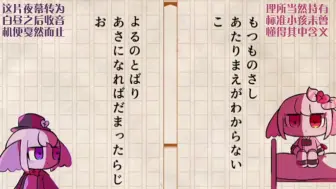 理所当然持有
标准小孩未曾
懂得其中含义
もつものさし
あたりまえがわからない
こ
这片夜幕转为
白昼之后收音
机便戛然而止
よるのとばり
あさになればだまったらじ
お